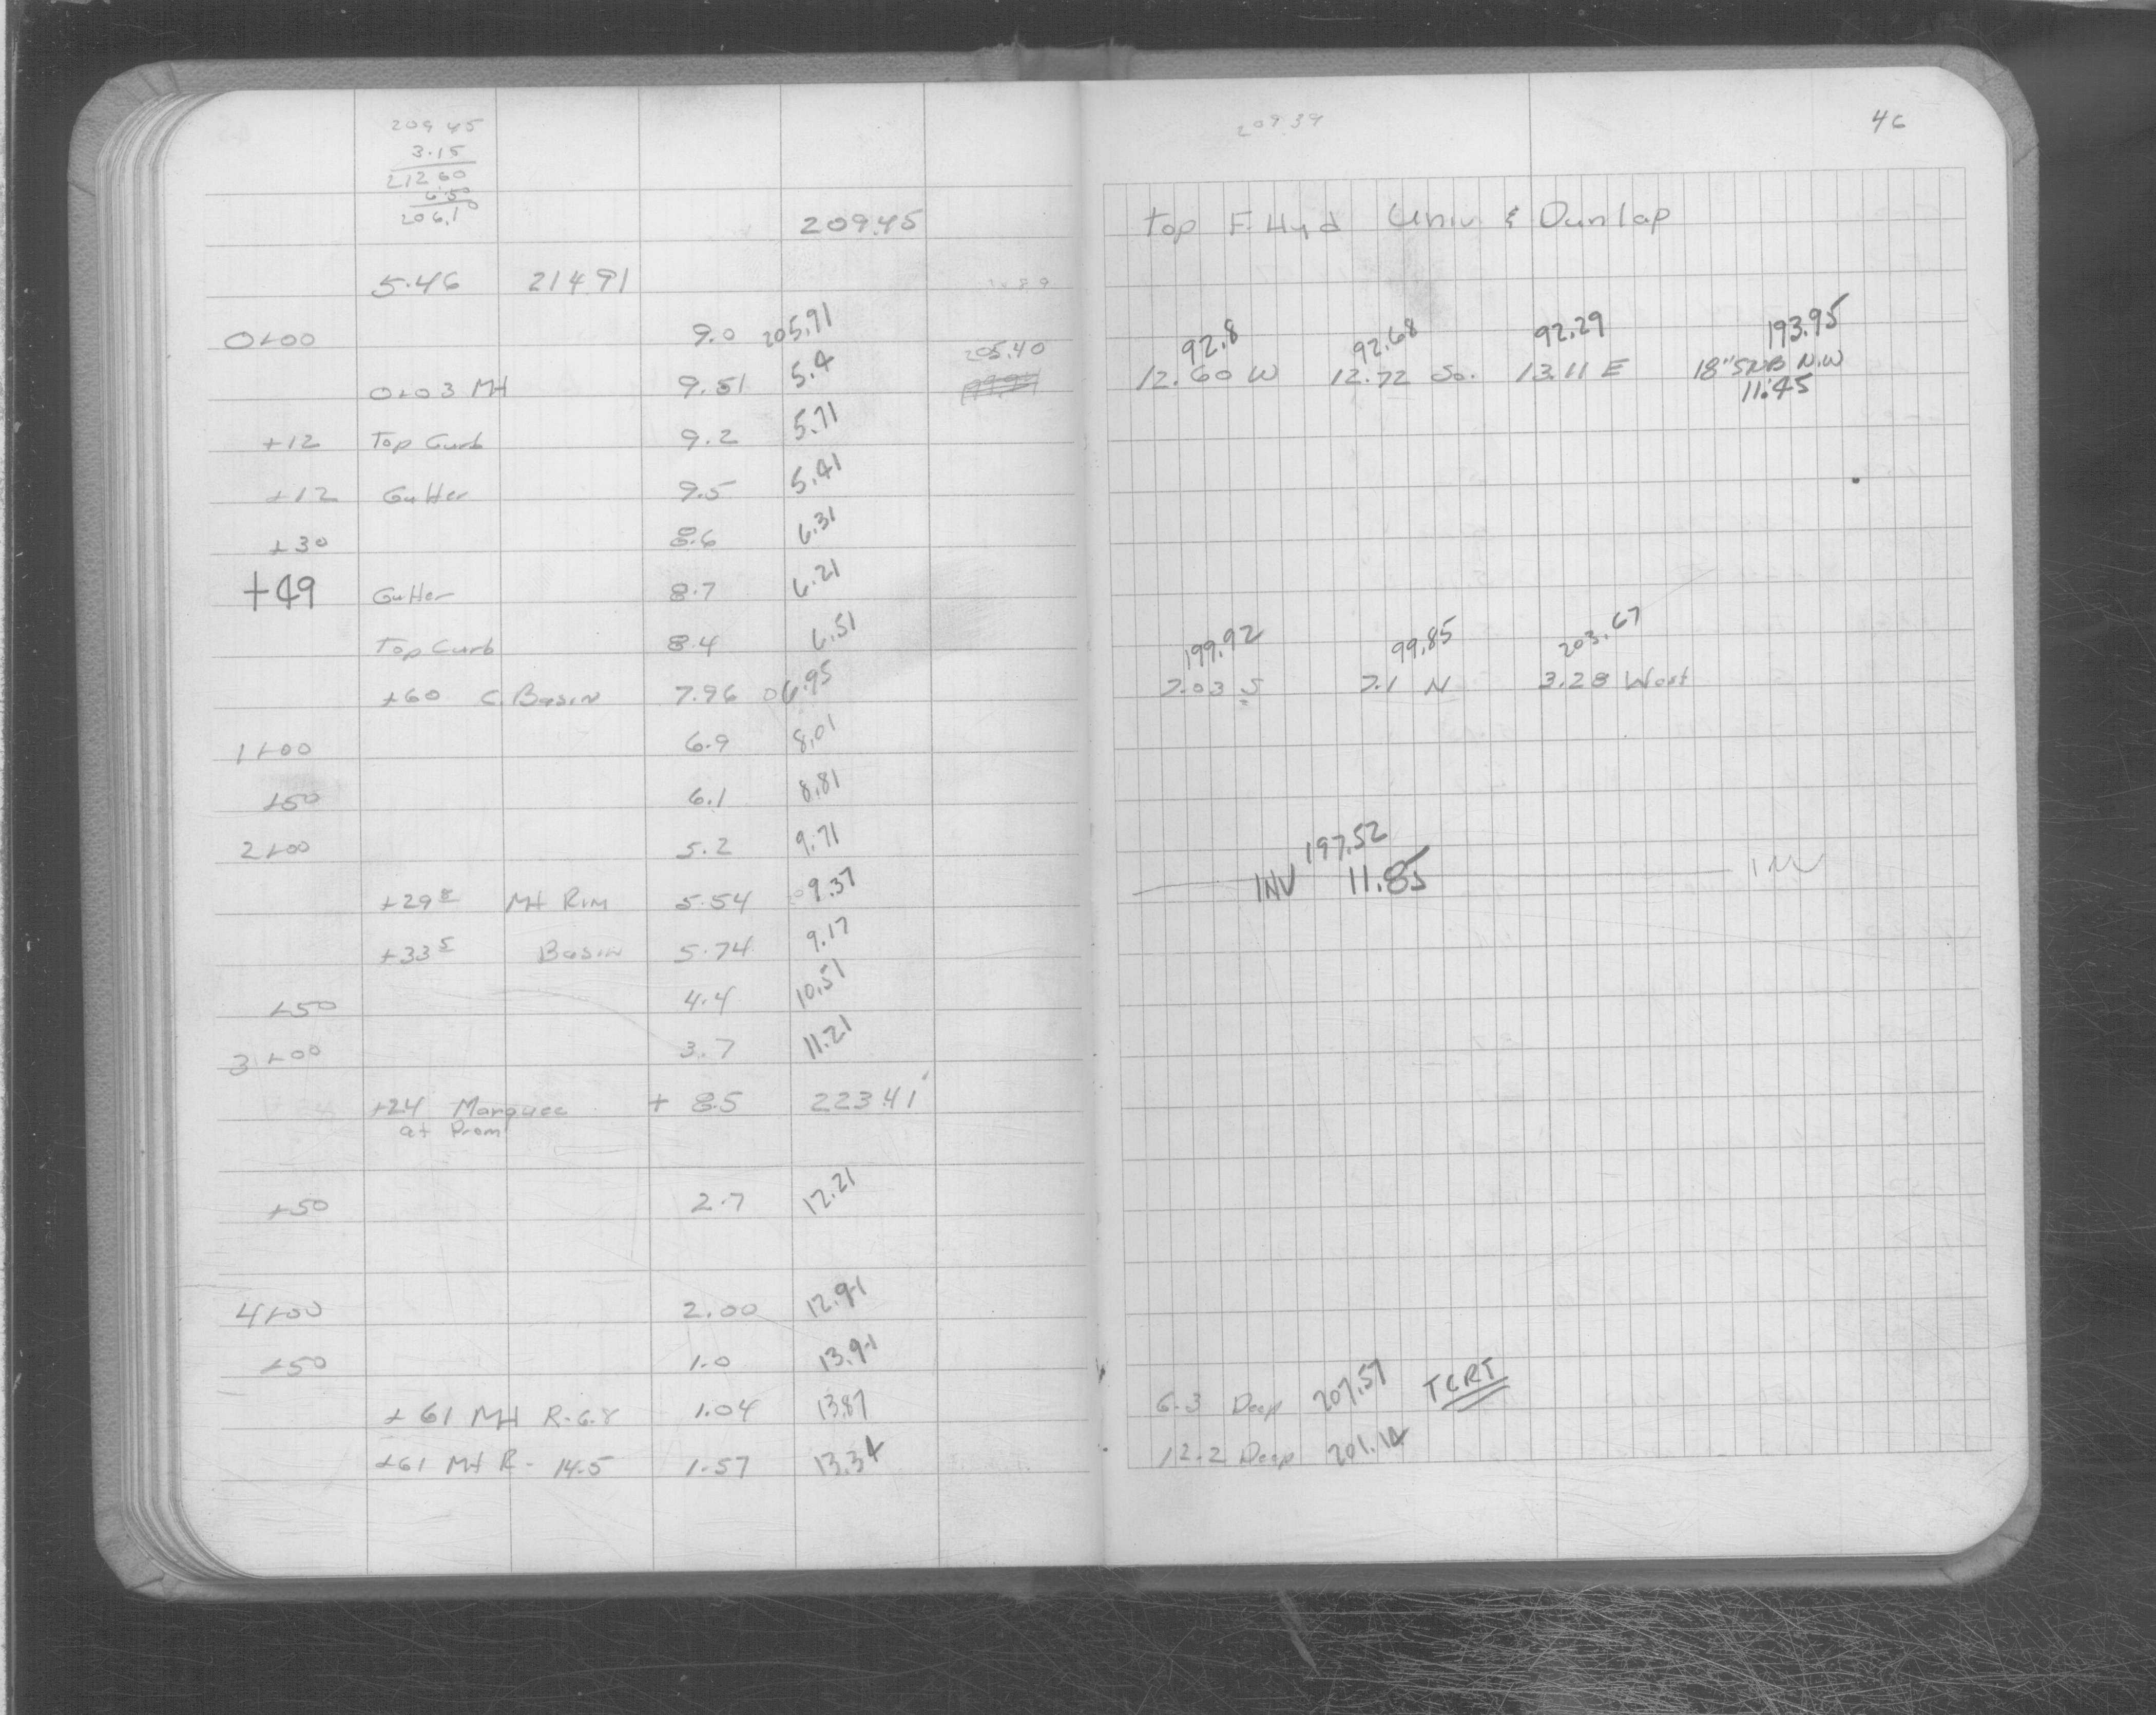 209.45
3.15
212.60
6.50
206.10
209.39
46
209.45 Top F. Hyd Univ. & Dunlap
5.46 214.91
0+00 9.0 205.91
92.8 92.68 92.29 193.95
0+03 MH 9.51 5.4 205.40 12.60 W 12.72 So. 13.11 E 18" SUB N.W
11.45
+12 Top Curb 9.2 5.71
+12 Gutter 9.5 5.41
+30 8.6 6.31
+49 Gutter 8.7 6.21
Top Curb 8.4 6.51
199.92 99.85 203.67
+60 C. Basin 7.96 06.95 7.03 S 7.1 N 3.28 West
1+00 6.9 8.01
+50 6.1 8.81
2+00 5.2 9.71
197.52
+29 8 MH Rim 5.54 09.37 INV 11.85 INV
+33 5 Basin 5.74 9.17
+50 4.4 10.51
3+00 3.7 11.21
+24 Marquee + 8.5 223.41
at Prom
+50 2.7 12.21
4+00 2.00 12.91
+50 1.0 13.91
+61 MH R-6.8 1.04 13.87 6.3 Deep 207.57 TCRT
+61 MH R- 14.5 1.57 13.34 12.2 Deep 201.14